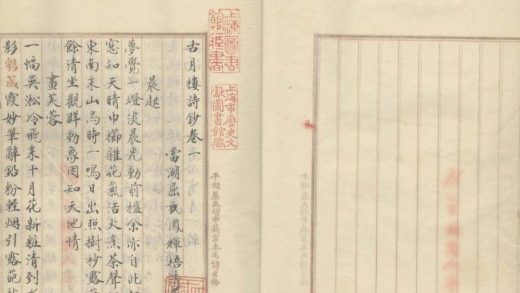 上海圖書館藏書
上海市歷史文獻圖書館藏
古月樓詩鈔卷一
當湖屈鳳輝梧
晨起
夢覺一燈淡晨光動前楹余亦自此
窓知天晴巾櫛雜花氣活火煮茶聲
東南來山鳥時一鳴日出照樹杪露
餘清坐觀群動象因知天地情
畫芙蓉
一幅吳淞冷飛來十月花新粧清到水
影彩成霞妙筆辭鉛粉輕烟引露葩